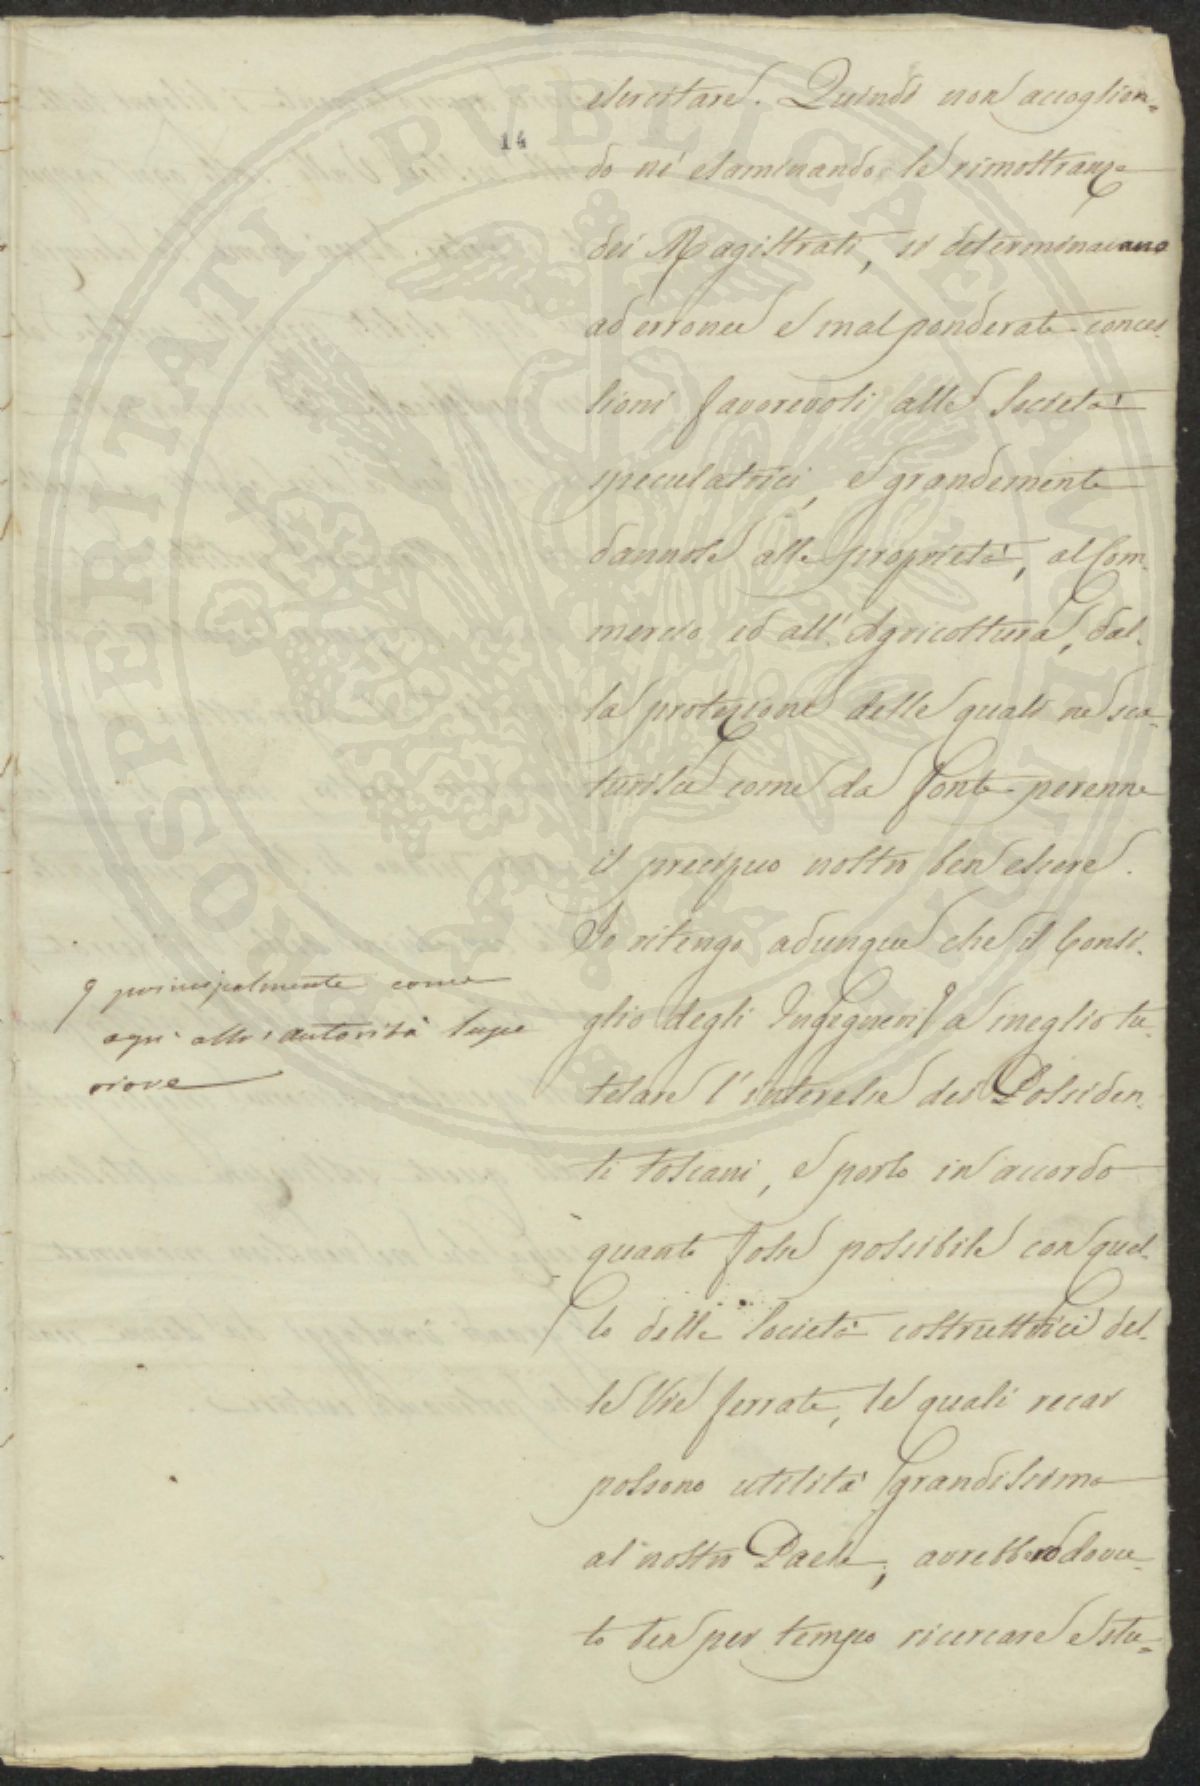 14
esercitare. Quindi non accoglien=
do né esaminando le rimostranze
dei Magistrati, si determinavano
ad erronee e mal ponderate conces=
sioni favorevoli alle Società
speculatrici, e grandemente
dannose alle proprietà, al Com=
mercio ed all'Agricoltura, dal=
la protezione delle quali ne sca=
turisce come da fonte perenne
il precipuo nostro ben essere.
Io ritengo adunque che il Consi=
glio degli Ingegneri a meglio tu=
telare l'interesse dei Possiden=
ti toscani, e porlo in accordo
quanto fosse possibile con quel=
lo delle Società costruttrici del=
le Vie ferrate, le quali recar
possono utilità grandissima
al nostro Paese, avrebbero dovu=
to ben per tempo ricercare e stu=
principalmente come
ogni altra autorità supe
riore
PROSPERITATI PVBLICAE AVGENDAE